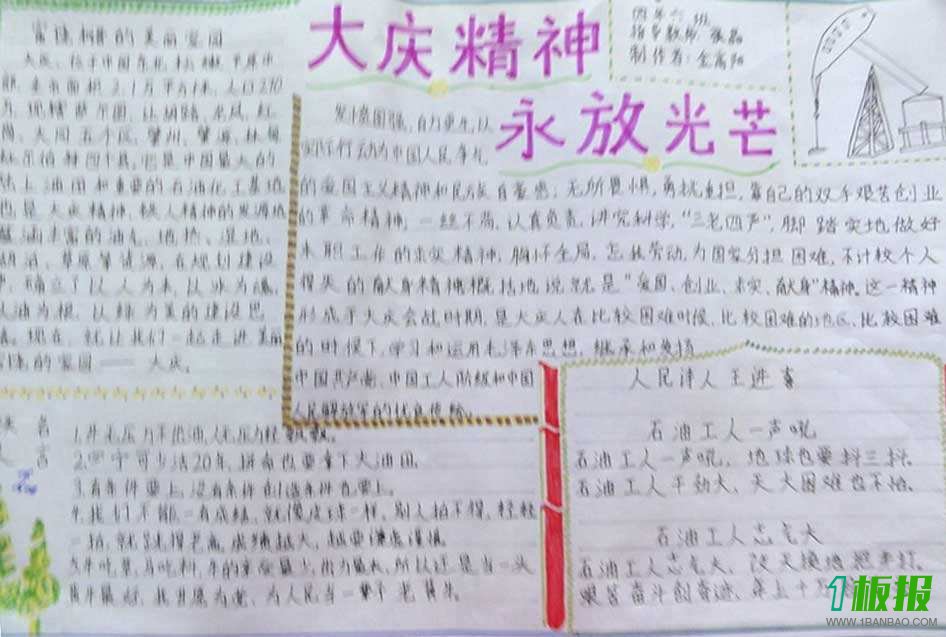 大庆精神
永放光芒
四年六班
指导教师:张晶
制作者:
的美丽家园
大庆,位于中国东北,松嫩平原中
2.1万平方千米,人口270
现辖萨尔图、让胡路、龙凤、红
岗、大同五个区,肇州、肇源、林甸
四个县,它是中国最大的
陆上油田和重要的石油化工基地
也是大庆精神、铁人精神的发源地
丰富的油气、地热、湿地、
湖泊、草原等资源,在规划建设
确立了以人为本、以水为魂、
以油为根、以绿为美的建设
现在,就让我们一起走进美丽
的家园——大庆。
发愤图强,自力更生,以
实际行动为中国人民争气
的爱国主义精神和民族自豪感;无所畏惧,勇挑重担,靠自己的双手艰苦创业
的革命精神;一丝不苟,认真负责,讲究科学,“三老四严”,脚踏实地做好
本职工作的求实精神;胸怀全局,忘我劳动,为国家分担困难,不计较个人
得失的献身精神概括地说就是“爱国、创业、求实、献身”精神。这一精神
形成于大庆会战时期,是大庆人在比较困难时候,比较困难的地区,比较困难
的时候下,学习和运用毛泽东思想,继承和发扬
中国共产党、中国工人阶级和中国
人民解放军的优良传统。
名
人
言
1.井无压力不出油,人无压力轻飘飘。
2.宁可少活20年,拼命也要拿下大油田。
3.有条件要上,没有条件创造条件也要上。
4.我们不能一有成绩,就像皮球一样,别人拍不得,轻轻
一拍,就跳得老高,成绩越大,越要谦虚谨慎
5.牛吃草,马吃料,牛的享受最少,出力最大,所以还是当一头
黄牛最好,我甘愿为党、为人民当一辈子老黄牛。
人民诗人王进喜
石油工人一声吼
石油工人一声吼,地球也要抖三抖。
石油工人干劲大,天大困难也不怕。
石油工人志气大
石油工人志气大,
艰苦奋斗创奇迹,年上十万
1板报
WWW.1BANBAO.COM